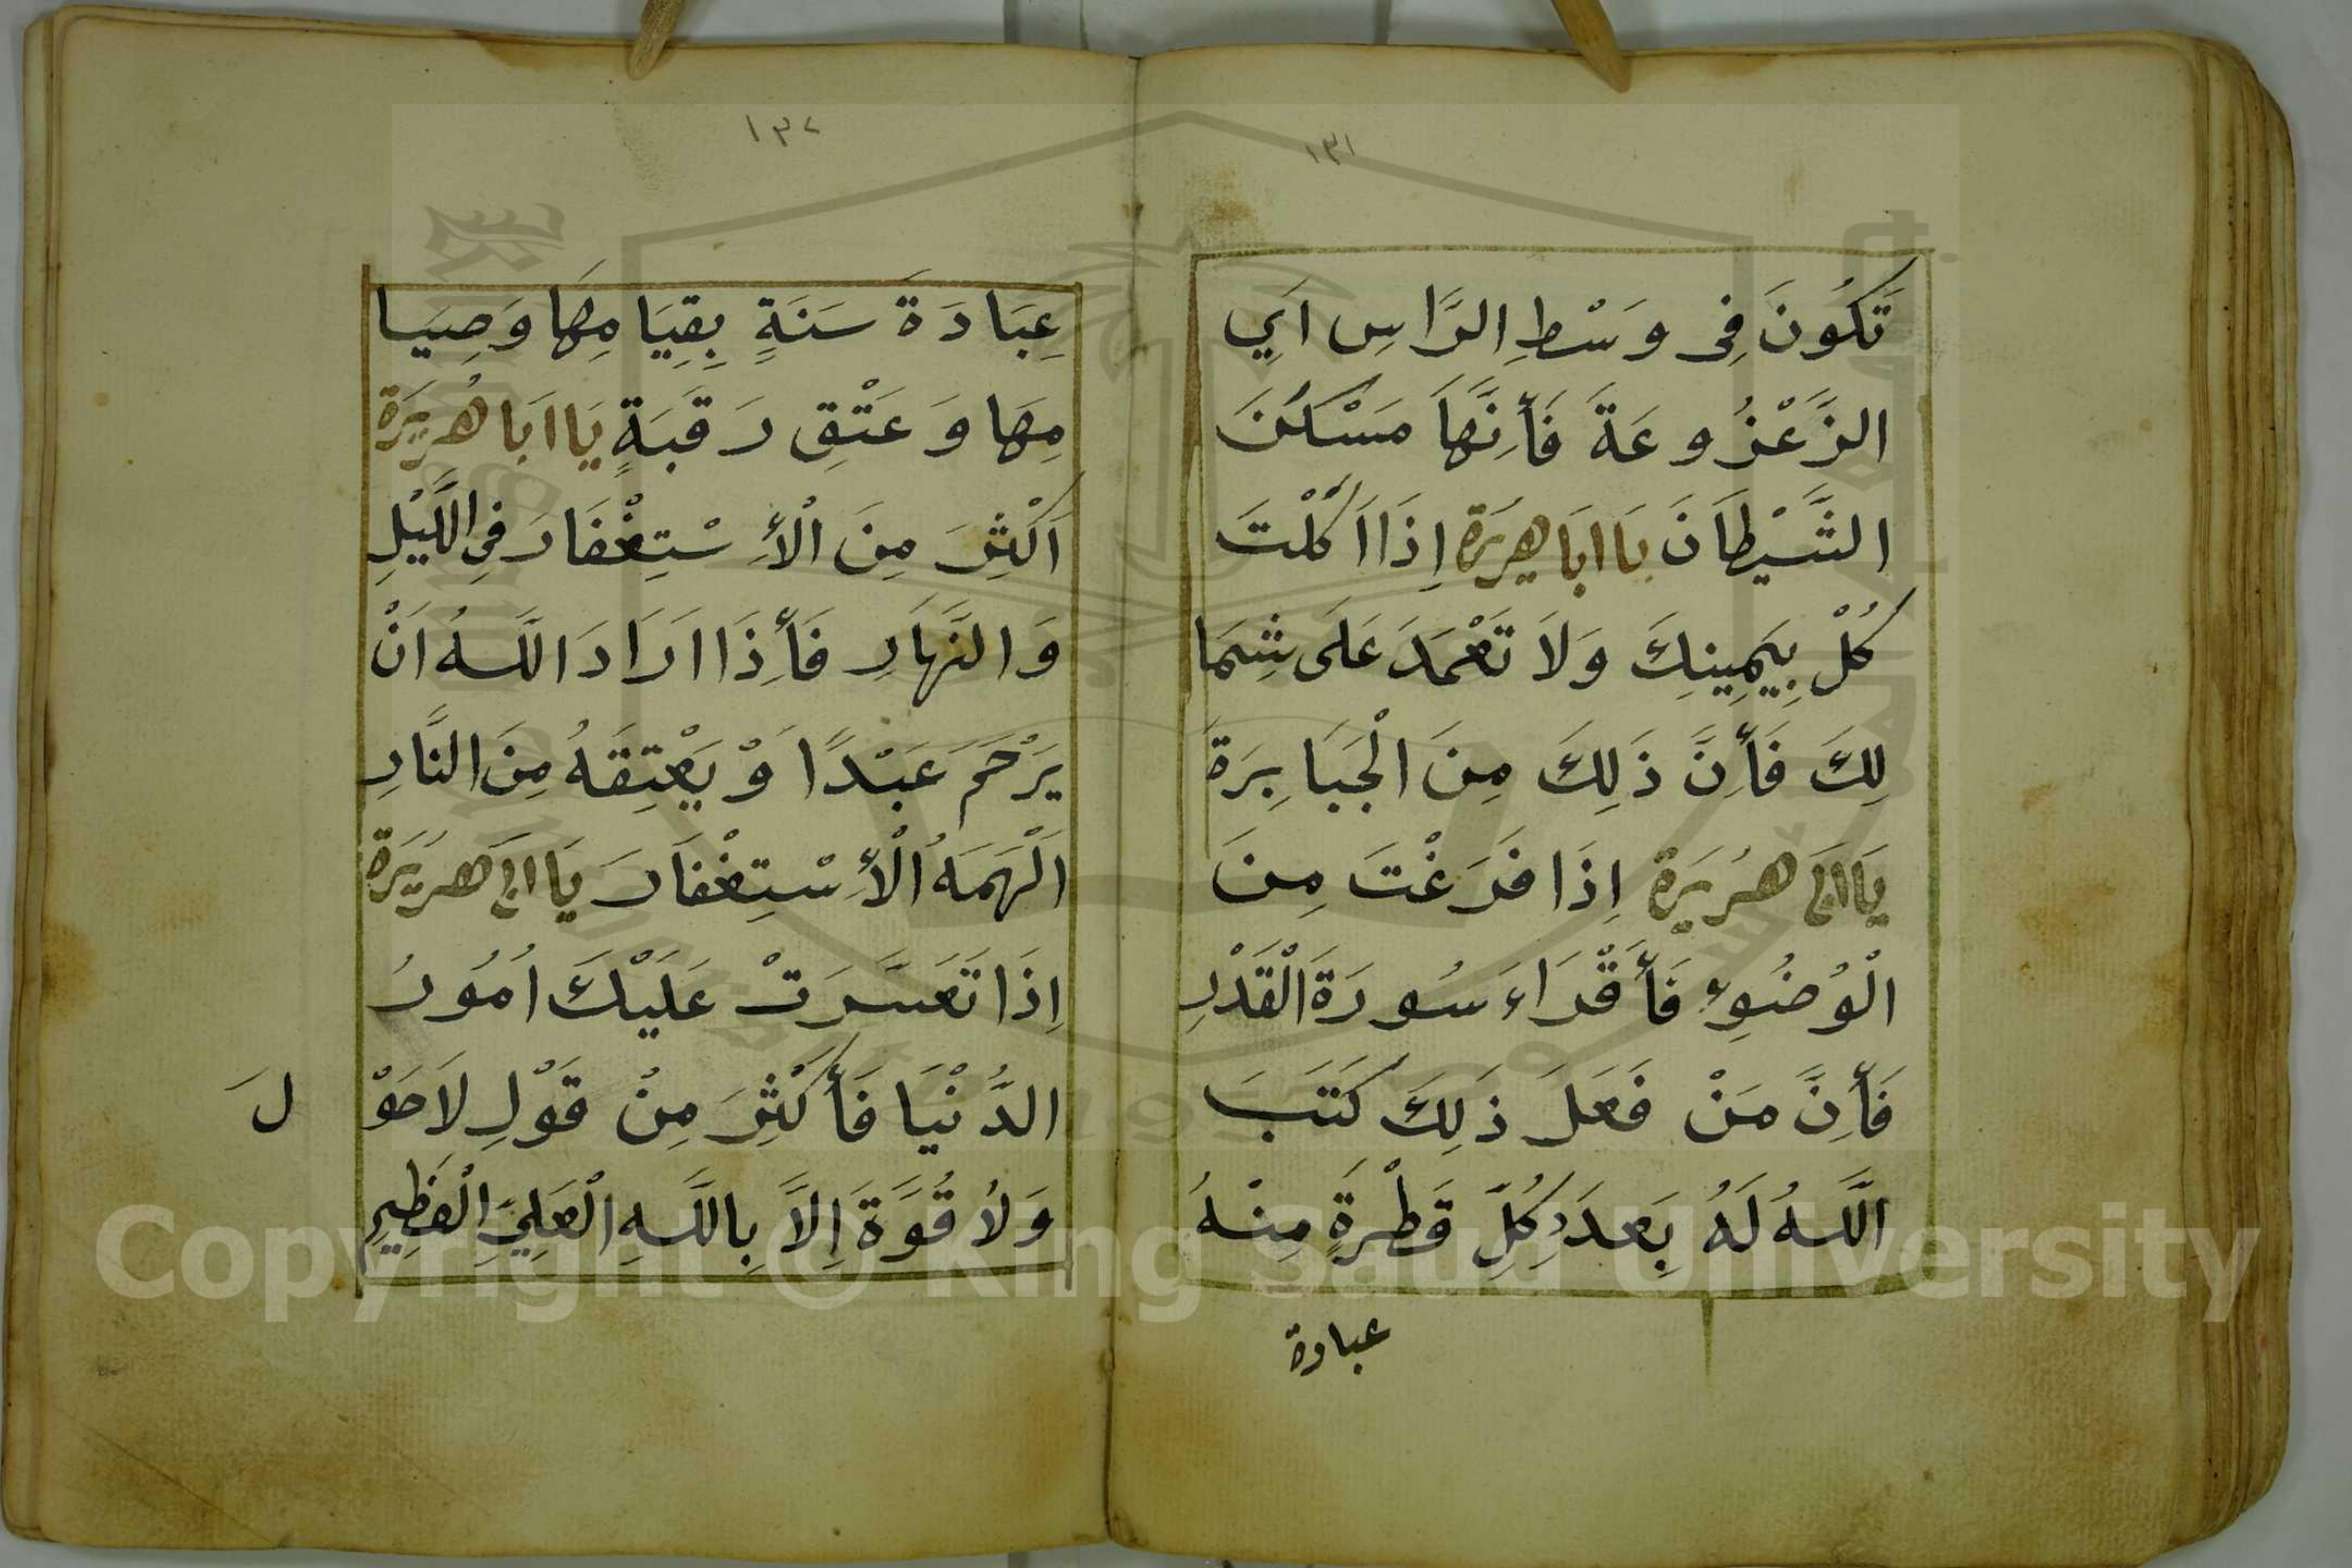 ١٣١
تَكُونَ فِى وَسْطِ الرَّاسِ اَيِ
الزَّعْزُوعَةَ فَأِنَّهَا مَسْكَنَ
الشَّيْطَانَ يَا اَبَا هِرِيْرَة اِذَا اَكَلْتَ
كُلْ بِيَمِينِكَ وَلاَ تَعْمَدَ عَلَى شِمَا
لِكَ فَأِنَّ ذَلِكَ مِنَ الْجَبَابِرَةَ
يَا اَبِى هُرَيْرَة اِذَا فَرَغْتَ مِنَ
الْوُضُوءِ فَأَقْرَاءَ سُورَةَ الْقَدْرِ
فَأِنَّ مَنْ فَعَلَ ذَلِكَ كَتَبَ
اللَّهُ لَهُ بِعَدَدِ كُلِّ قَطْرَةٍ مِنْهُ
عبادة
١٣٢
عِبَادَةَ سَنَةٍ بِقِيَامِهَا وَصِيَا
مِهَا وَعَتْقِ رَقَبَةٍ يَا اَبَا هُرَيْرَة
اَكْثِرَ مِنَ الْأِسْتِغْفَارَ فِى اللَّيْلِ
وَالنَّهَارِ فَأِذَا اَرَادَ اللَّهُ اَنْ
يَرْحَمَ عَبْدًا وْ يَعْتِقَهُ مِنَ النَّارِ
اَلْهَمَهُ الْأِسْتِغْفَارَ يَا اَبِى هُرَيْرَة
اِذَا تَعَسَّرَتْ عَلَيْكَ اُمُورُ
الدُّنْيَا فَأَكْثِرَ مِنْ قَوْلِ لاَحَوْ
لَ
وَلاَ قُوَّةَ اِلاَّ بِاللَّهِ الْعَلِيِّ الْعَظِيمِ
Copyright © King Saud University